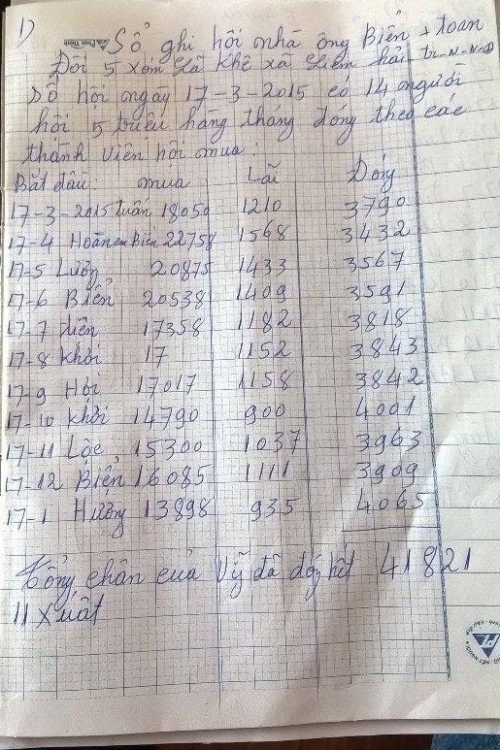 1)
Sổ ghi hồi nhà ông Biển + toan
Đội 5 xóm Lã Khê xã Liêm hải tr-N-N-Đ
Sổ hội ngày 17-3-2015 có 14 người
hội 5 triệu hàng tháng đóng theo các
thành viên hội mua:
Bắt đầu: mua Lãi Đóng
17-3-2015 tuấn 18050 1210 3790
17-4 Hoãn em Biển 22758 1568 3432
17-5 Lượng 20875 1433 3567
17-6 Biển 20538 1409 3591
17-7 Hên 17358 1182 3818
17-8 Khôi 17 1152 3843
17-9 Hội 17017 1158 3842
17-10 Khởi 14790 900 4001
17-11 Lộc 15300 1037 3963
17-12 Biển 16085 1111 3909
17-1 Hường 13898 935 4065
Tổng chân của Vỹ đã đóng hết 41821
11 xuất